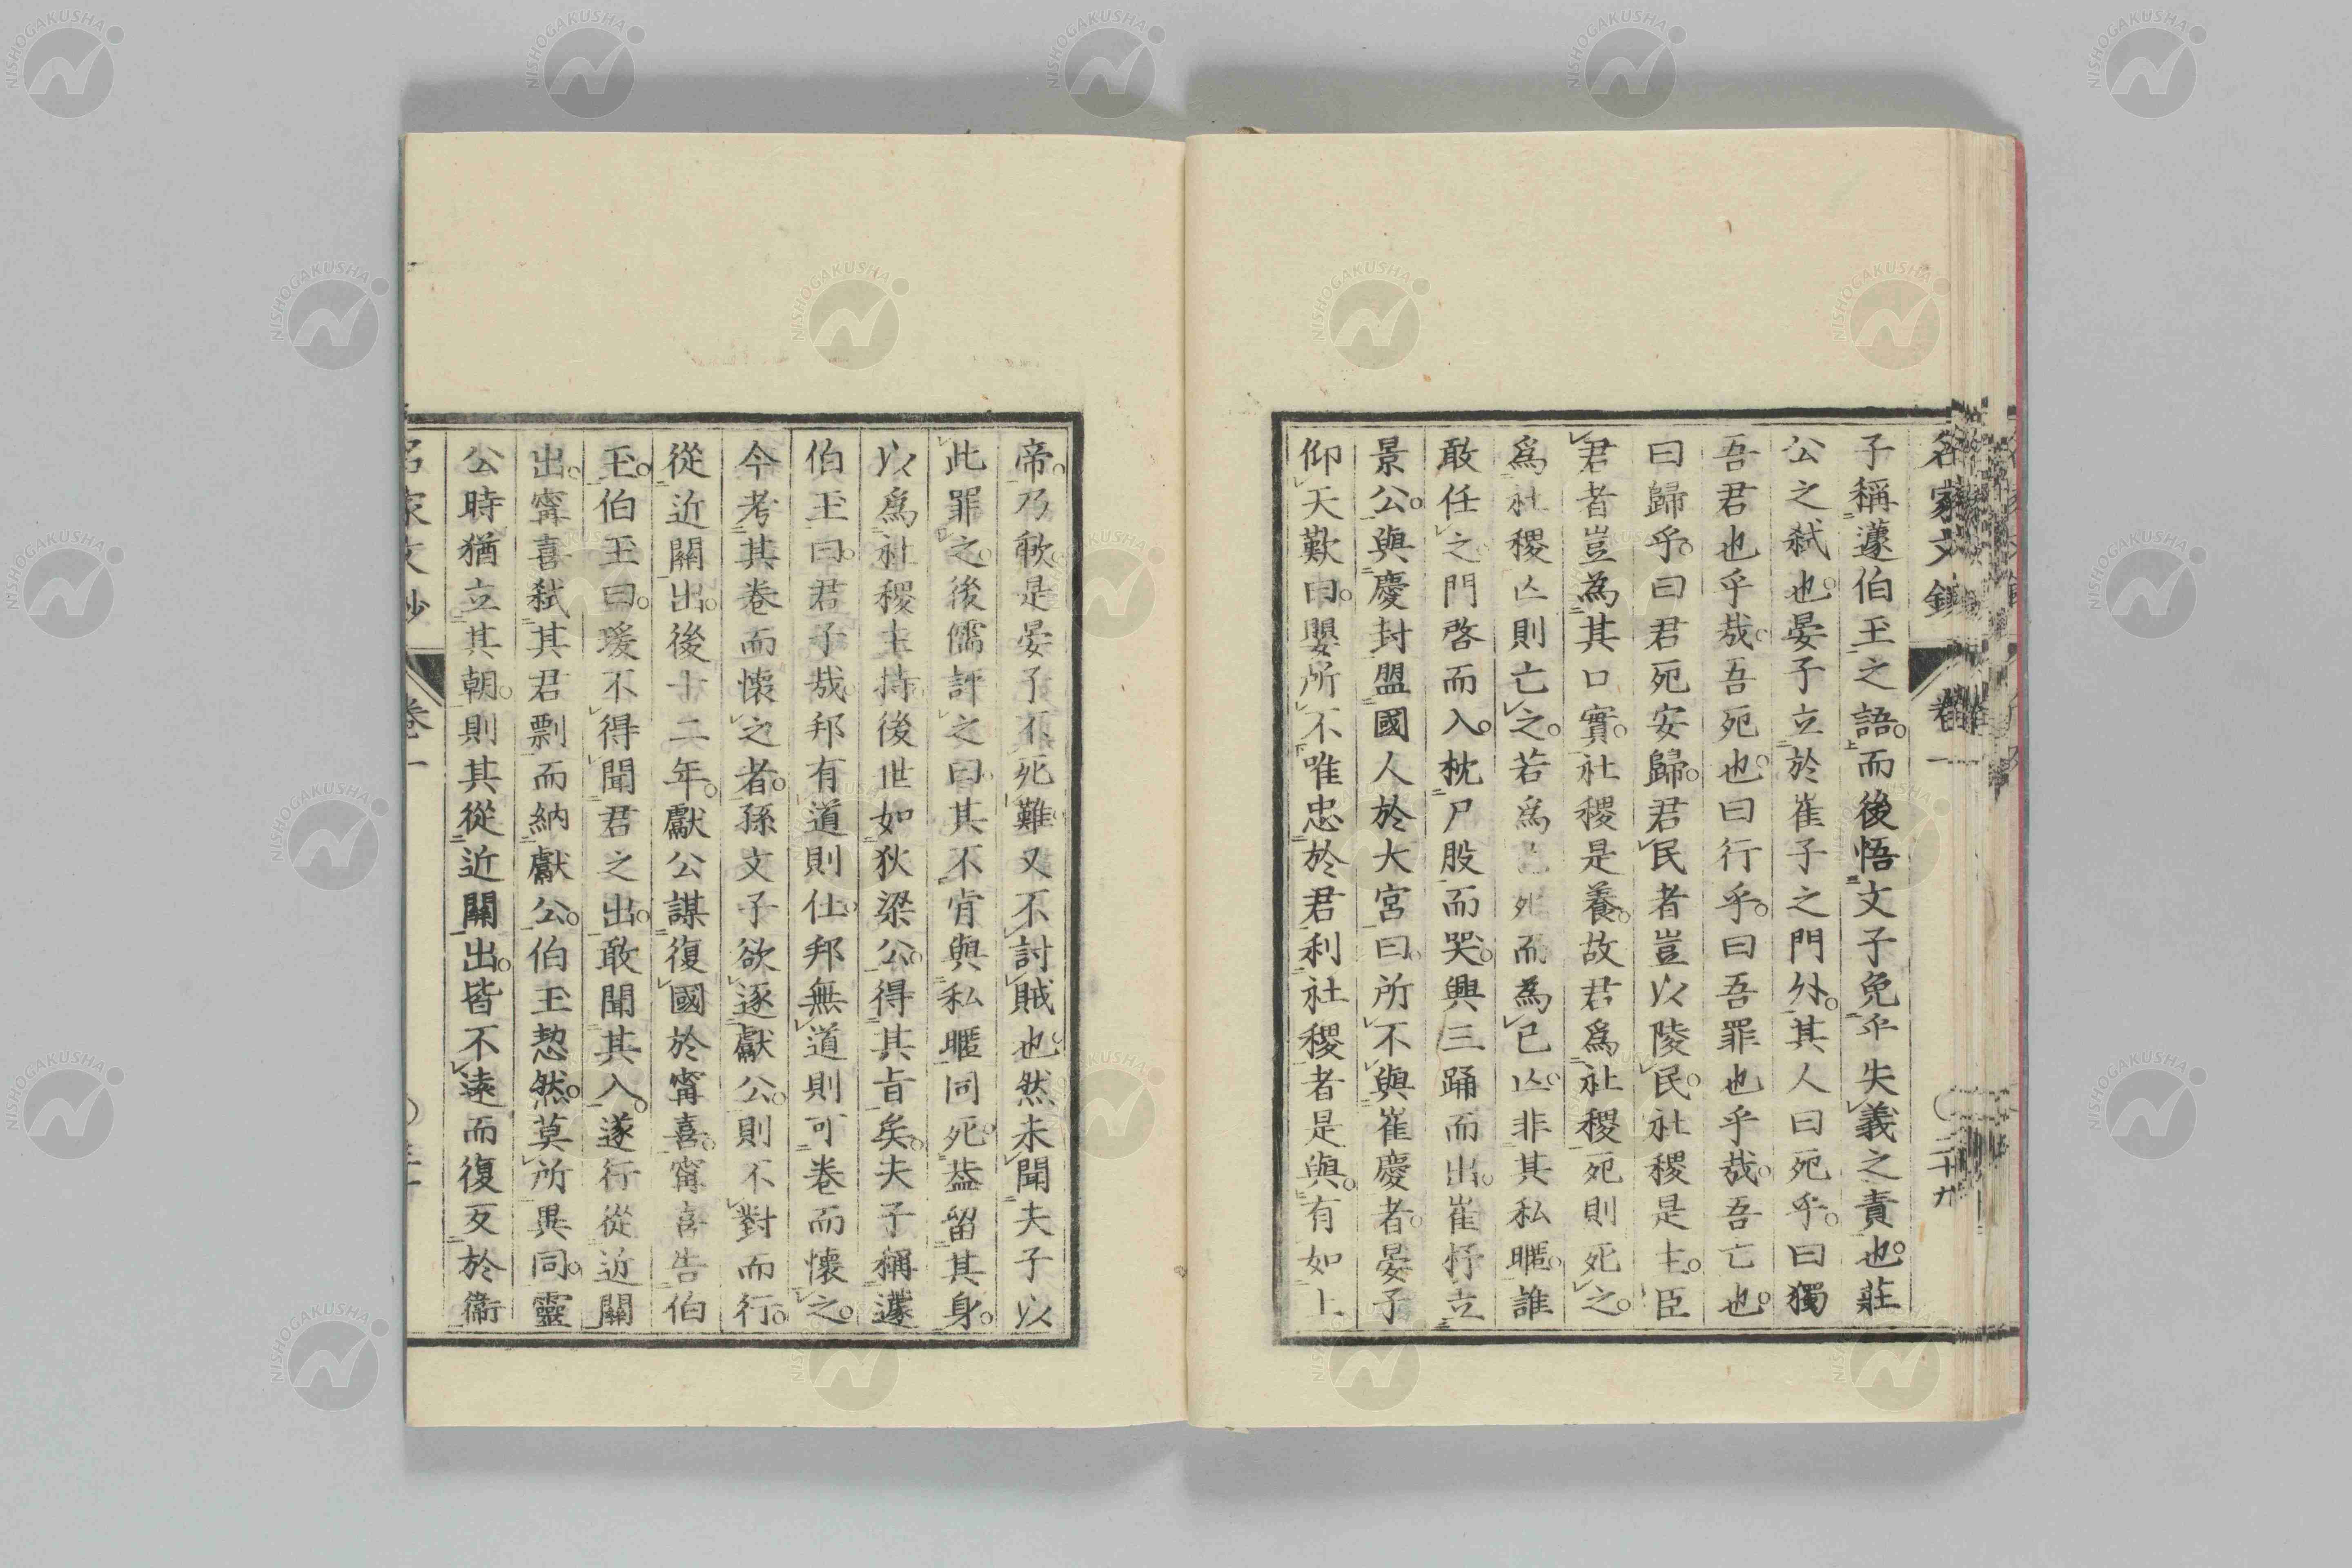 名家文鈔
卷一
二十九
子稱蘧伯玉之語。而後悟文子免乎失義之責也。莊
公之弑也。晏子立於崔子之門外。其人曰死乎。曰獨
吾君也乎哉。吾死也。曰行乎。曰吾罪也乎哉。吾亡也。
曰歸乎。曰君死安歸。君民者豈以陵民。社稷是主。臣
君者豈為其口實。社稷是養。故君爲社稷死則死之。
爲社稷亾則亡之。若爲己死而為己亾。非其私暱。誰
敢任之門啓而入。枕尸股而哭。興三踊而出。崔杼立
景公。與慶封盟國人於大宮曰。所不與崔慶者。晏子
仰天歎曰。嬰所不唯忠於君利社稷者是與。有如上
帝。乃歃是晏子不死難。又不討賊也。然未聞夫子以
此罪之。後儒評之曰。其不肯與私暱同死。葢留其身。
以爲社稷主持。後世如狄梁公。得其旨矣。夫子稱蘧
伯玉曰。君子哉。邦有道則仕。邦無道則可卷而懷之。
今考其卷而懷之者。孫文子欲逐獻公。則不對而行。
從近關出。後十二年。獻公謀復國於甯喜。甯喜告伯
玉。伯玉曰。瑗不得聞君之出。敢聞其入。遂行從近關
出。甯喜弑其君剽而納獻公。伯玉恝然。莫所異同。靈
公時猶立其朝。則其從近關出。皆不遠而復反於衞
名家文鈔
卷一